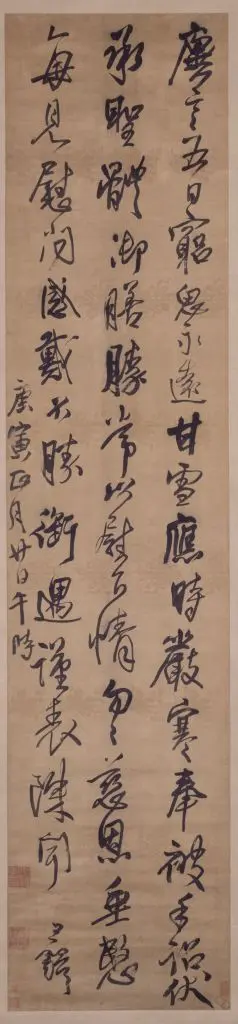 廙言五日窮思永遠甘雪應時嚴寒奉被手詔伏
承聖體御膳勝常以慰下情勿勿慈恩垂愍
每見慰問感戴不勝銜遇謹表陳聞 王鐸
庚寅正月廿日午時